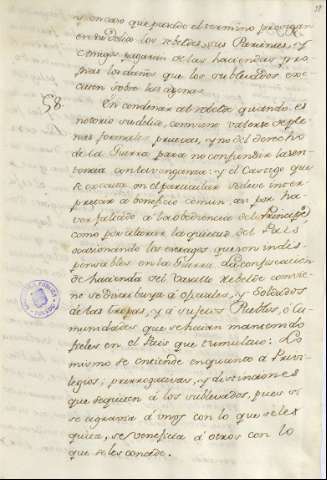 y en caso que pasado el termino prosigan
en su delito los rebeldes, sus Parientes, y
Amigos pagarán de las haciendas pro-
pias los daños que los sublevados exe-
cuten sobre las agenas.
58. En condenar al rebelde quando es
notorio su delito, conviene valerse de ple-
nas formales pruevas, y no del derecho
de la Guerra para no confundir la sen-
tencia con la venganza: y el Castigo que
se executa en el particular se deve inter-
pretar a beneficio comun, en por ha-
ver faltado à la obediencia del Principe,
como por alterar la quietud del Pais
ocasionando los estragos que son indis-
pensables en la Guerra. La confiscacion
de hacienda del Vasallo Rebelde convie-
ne se distribuya á oficiales, y Soldados
de las tropas, y a sujetos Pueblos, ó Co-
munidades que se haian mantenido
fieles en el Pais que tumultuó: Lo
mismo se entiende en quanto a Privi-
legios, prerrogativas, y distinciones
que se quiten á los sublevados, pues si
se agravia á unos con lo que se les
quita, se veneficia á otros con lo
que se les concede.